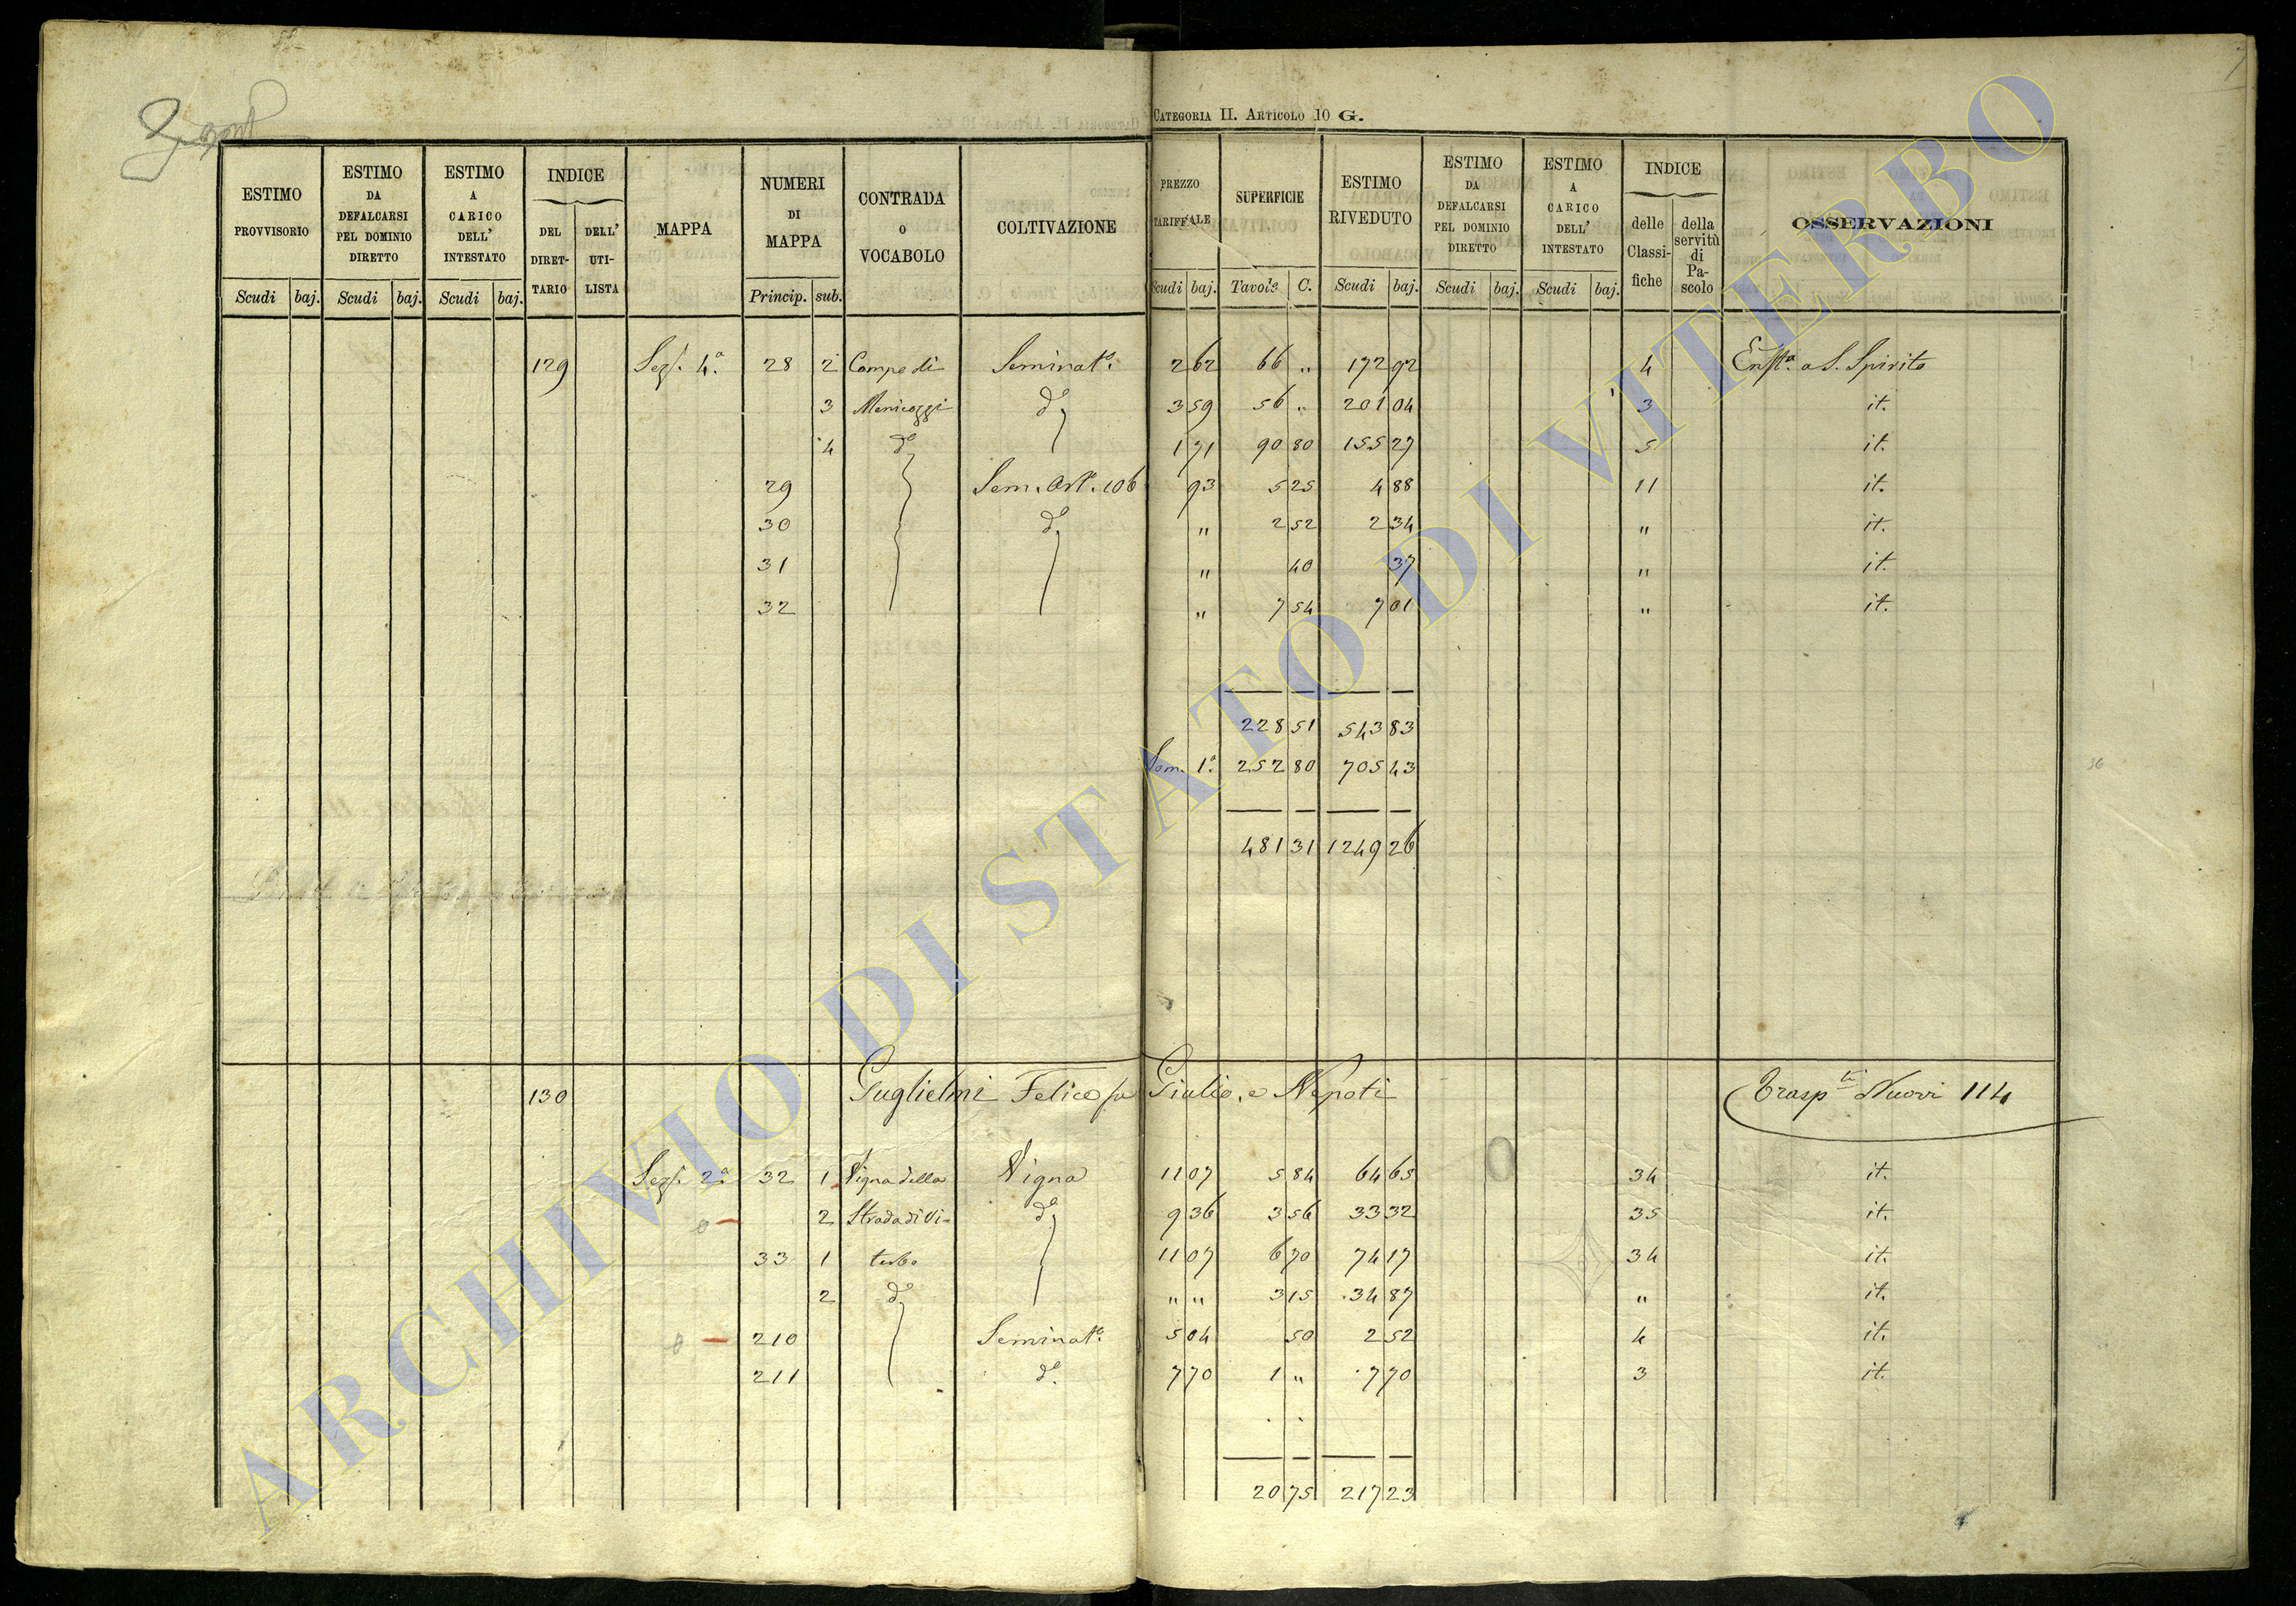 CATEGORIA II. ARTICOLO 10 G.
ESTIMO PROVVISORIO Scudi baj. | ESTIMO DA DEFALCARSI PEL DOMINIO DIRETTO Scudi baj. | ESTIMO A CARICO DELL' INTESTATO Scudi baj. | INDICE DEL DIRET-TARIO | DELL' UTI-LISTA | MAPPA | NUMERI DI MAPPA Princip. sub. | CONTRADA O VOCABOLO | COLTIVAZIONE | PREZZO TARIFFALE Scudi baj. | SUPERFICIE Tavole C. | ESTIMO RIVEDUTO Scudi baj. | ESTIMO DA DEFALCARSI PEL DOMINIO DIRETTO Scudi baj. | ESTIMO A CARICO DELL' INTESTATO Scudi baj. | INDICE delle Classi-fiche | della servitù di Pa-scolo | OSSERVAZIONI
129 Sez. 4.a 28 2 Campo di Seminat.o 2 62 66 " 172 92 4 Enft.a a S. Spirito
3 Menicozzi d.o 3 59 56 " 201 04 3 it.
4 d.o 1 71 90 80 155 27 5 it.
29 Sem. Art. 106 93 5 25 4 88 11 it.
30 d.o " 2 52 2 34 " it.
31 " 40 37 " it.
32 " 7 54 7 01 " it.
228 51 543 83
Som. 1.a 252 80 705 43
481 31 1249 26
130 Guglielmi Felice fu Giulio, e Nepoti Trasp.ti Nuovi 114
Sez. 2.a 32 1 Vigna della Vigna 11 07 5 84 64 65 34 it.
2 Strada di Vi- d.o 9 36 3 56 33 32 35 it.
33 1 terbo 11 07 6 70 74 17 34 it.
2 d.o " " 3 15 34 87 " it.
210 Seminat.o 5 04 50 2 52 4 it.
211 d.o 7 70 1 " 7 70 3 it.
20 75 217 23
36
ARCHIVIO DI STATO DI VITERBO